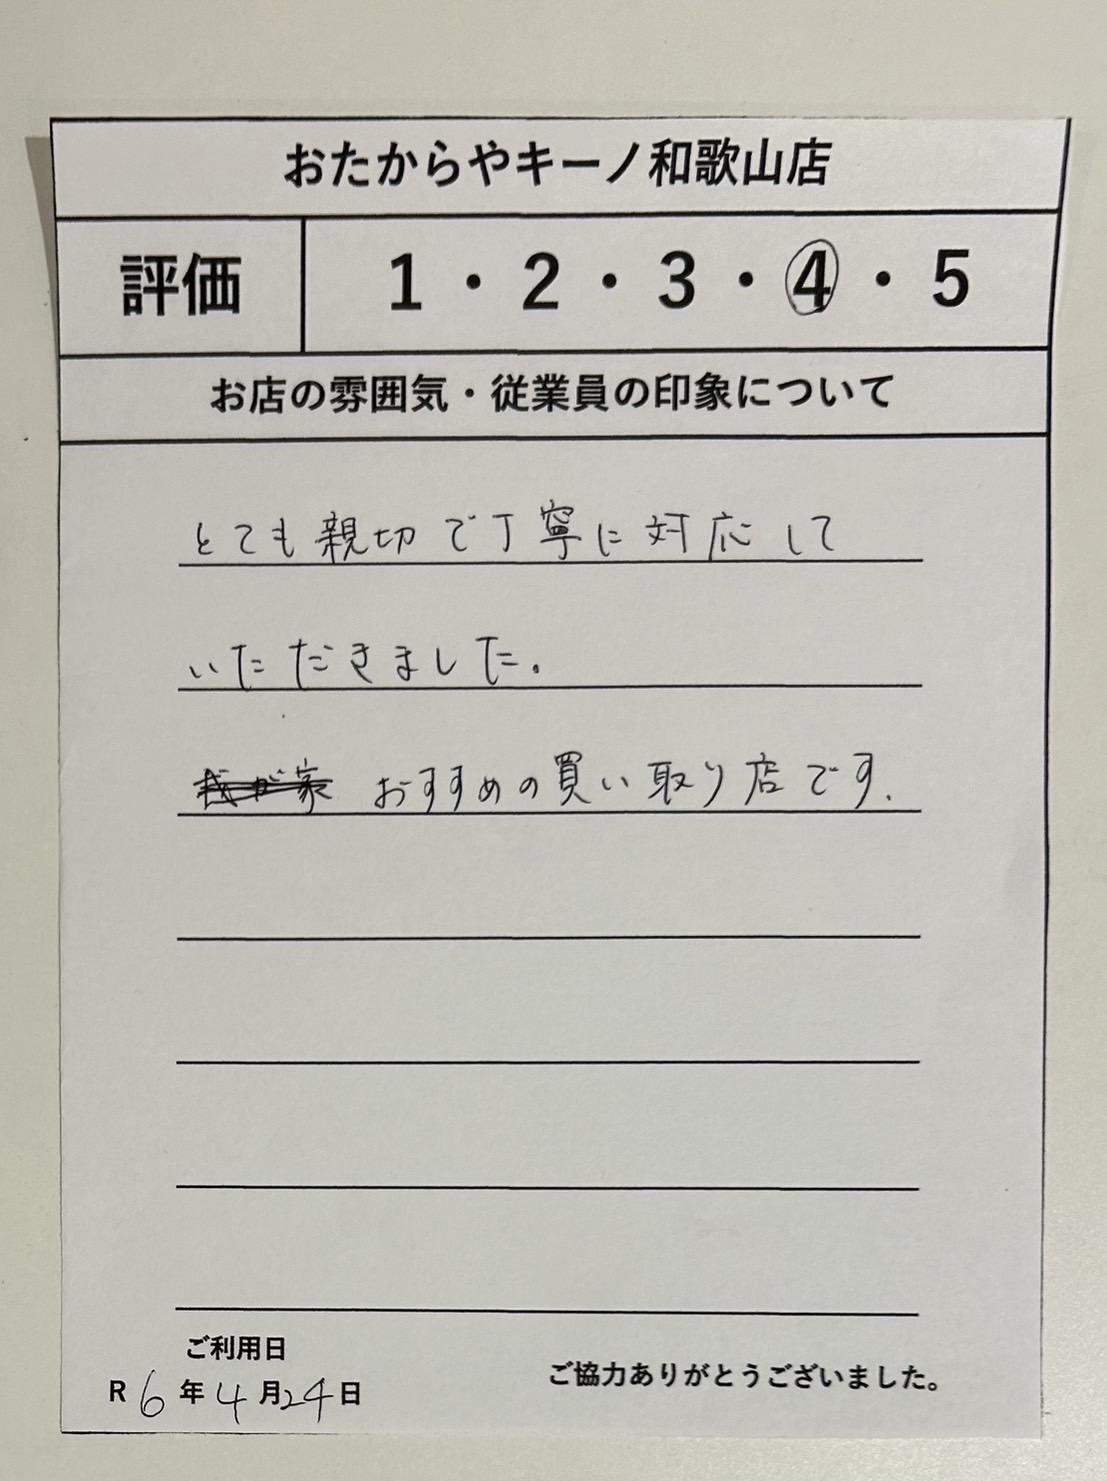 おたからやキーノ和歌山店
評価 1・2・3・4・5
お店の雰囲気・従業員の印象について
とても親切で丁寧に対応して
いただきました。
我が家 おすすめの買い取り店です.
ご利用日
R6年4月24日
ご協力ありがとうございました。